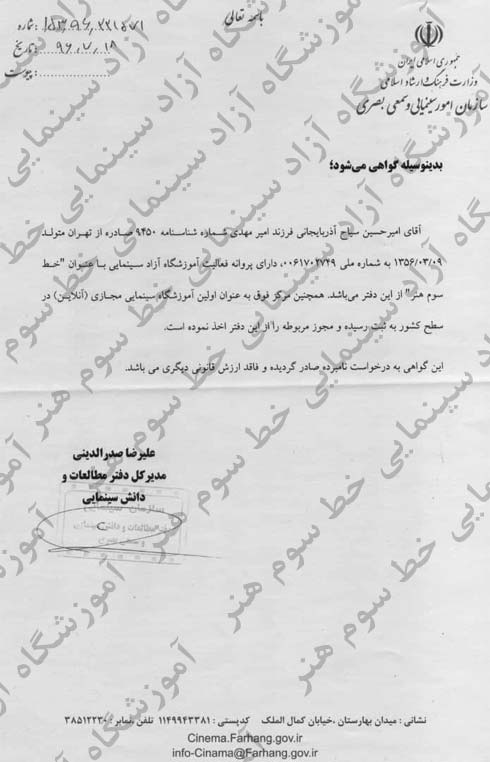 باسمه تعالی
شماره: ۱۵۳.۹۶.۲۲۱۵۷۱
تاریخ: ۹۶.۷.۱۸
پیوست:
جمهوری اسلامی ایران
وزارت فرهنگ و ارشاد اسلامی
سازمان امور سینمایی و سمعی بصری
بدینوسیله گواهی می‌شود؛
آقای امیرحسین سیاح آذربایجانی فرزند امیر مهدی شماره شناسنامه ۹۴۵۰ صادره از تهران متولد
۱۳۵۶/۰۳/۰۹ به شماره ملی ۰۰۶۱۷۰۲۷۴۹، دارای پروانه فعالیت آموزشگاه آزاد سینمایی با عنوان "خط
سوم هنر" از این دفتر می‌باشد. همچنین مرکز فوق به عنوان اولین آموزشگاه سینمایی مجازی (آنلاین) در
سطح کشور به ثبت رسیده و مجوز مربوطه را از این دفتر اخذ نموده است.
این گواهی به درخواست نامبرده صادر گردیده و فاقد ارزش قانونی دیگری می باشد.
علیرضا صدرالدینی
مدیرکل دفتر مطالعات و
دانش سینمایی
نشانی: میدان بهارستان، خیابان کمال الملک کدپستی: ۱۱۴۹۹۴۳۳۸۱ تلفن نمابر: ۳۸۵۱۲۲۳۰
Cinema.Farhang.gov.ir
info-Cinama@Farhang.gov.ir
آموزشگاه آزاد سینمایی خط سوم هنر